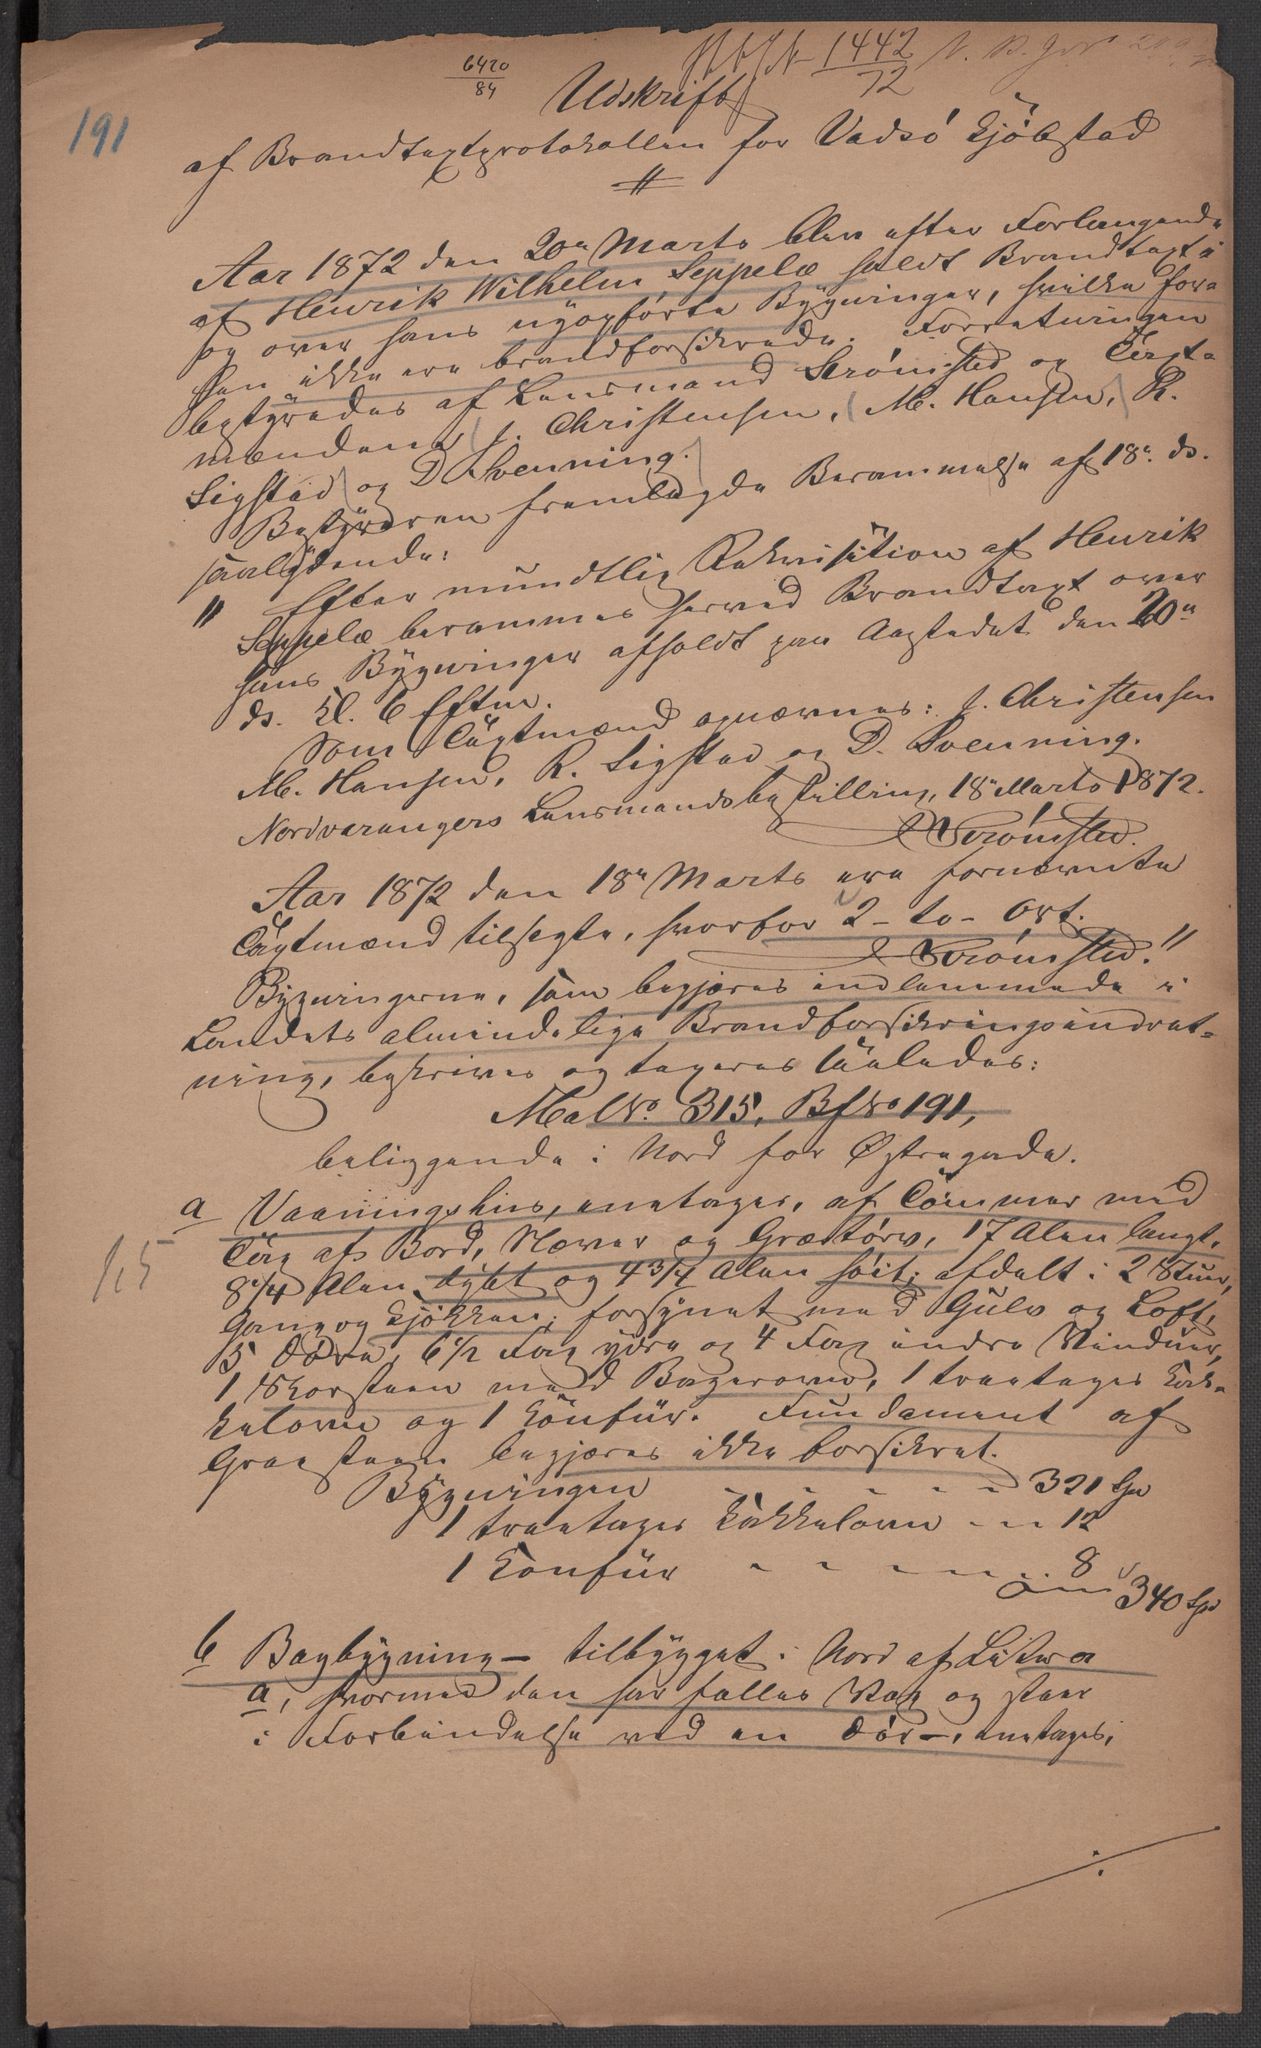 6420
84
1442
72
191
Udskrift
af Brandtaxtprotokollen for Vadsö Kjöbstad
Aar 1872 den 20de Marts blev efter Forlangende
af Henrik Wilhelm Seppelæ holdt Brandtaxt i
og over hans nyopförte Bygninger, hvilke for-
hen ikke ere brandforsikrede. Forretningen
bestyredes af Lensmand Strömsted og Taxt-
mændene J. Christensen, M. Hansen, R.
Sigstad og D. Svenning.
Bestyreren fremlagde Berammelse af 18de ds.
saalydende:
" Efter mundtlig Rekvisition af Henrik
Seppelæ berammes herved Brandtaxt over
hans Bygninger afholdt paa Aastedet den 20de
ds. Kl. 6 Eftm.
Som Taxtmænd opnævnes: J. Christensen
M. Hansen, R. Sigstad og D. Svenning.
Nordvarangers Lensmandsbestilling, 18de Marts 1872.
Strömsted.
Aar 1872 den 18de Marts ere fornævnte
Taxtmænd tilsagte, hvorfor 2 - to - Ort.
Strömsted."
Bygningerne, som begjæres indlemmede i
Landets almindelige Brandforsikringsindret-
ning, beskrives og taxeres saaledes:
Mal No. 315, Bf No 191,
beliggende i Nord for Østregade.
a Vaaningshus, enetages, af Tömmer med
Tag af Bord, Næver og Grästörv, 17 Alen langt,
8 1/4 Alen dybt og 4 3/4 Alen höit; afdelt i 2 Stuer,
Gang og Kjökken; forsynet med Gulv og Loft,
5 Döre, 6 1/2 Fag ydre og 4 Fag indre Vinduer,
1 Skorsteen med Bagerovn, 1 treetages Kak-
kelovn og 1 Komfür. Fundament af
Graasteen begjæres ikke forsikret.
Bygningen - - - - 321 Spd
1 treetages Kakkelovn - - 12
1 Komfür - - - - 8
340 Spd
b Bagbygning - tilbygget i Nord af Litra
a, hvormed den har fælles Væg og staar
i Forbindelse ved en Dör -, enetages,